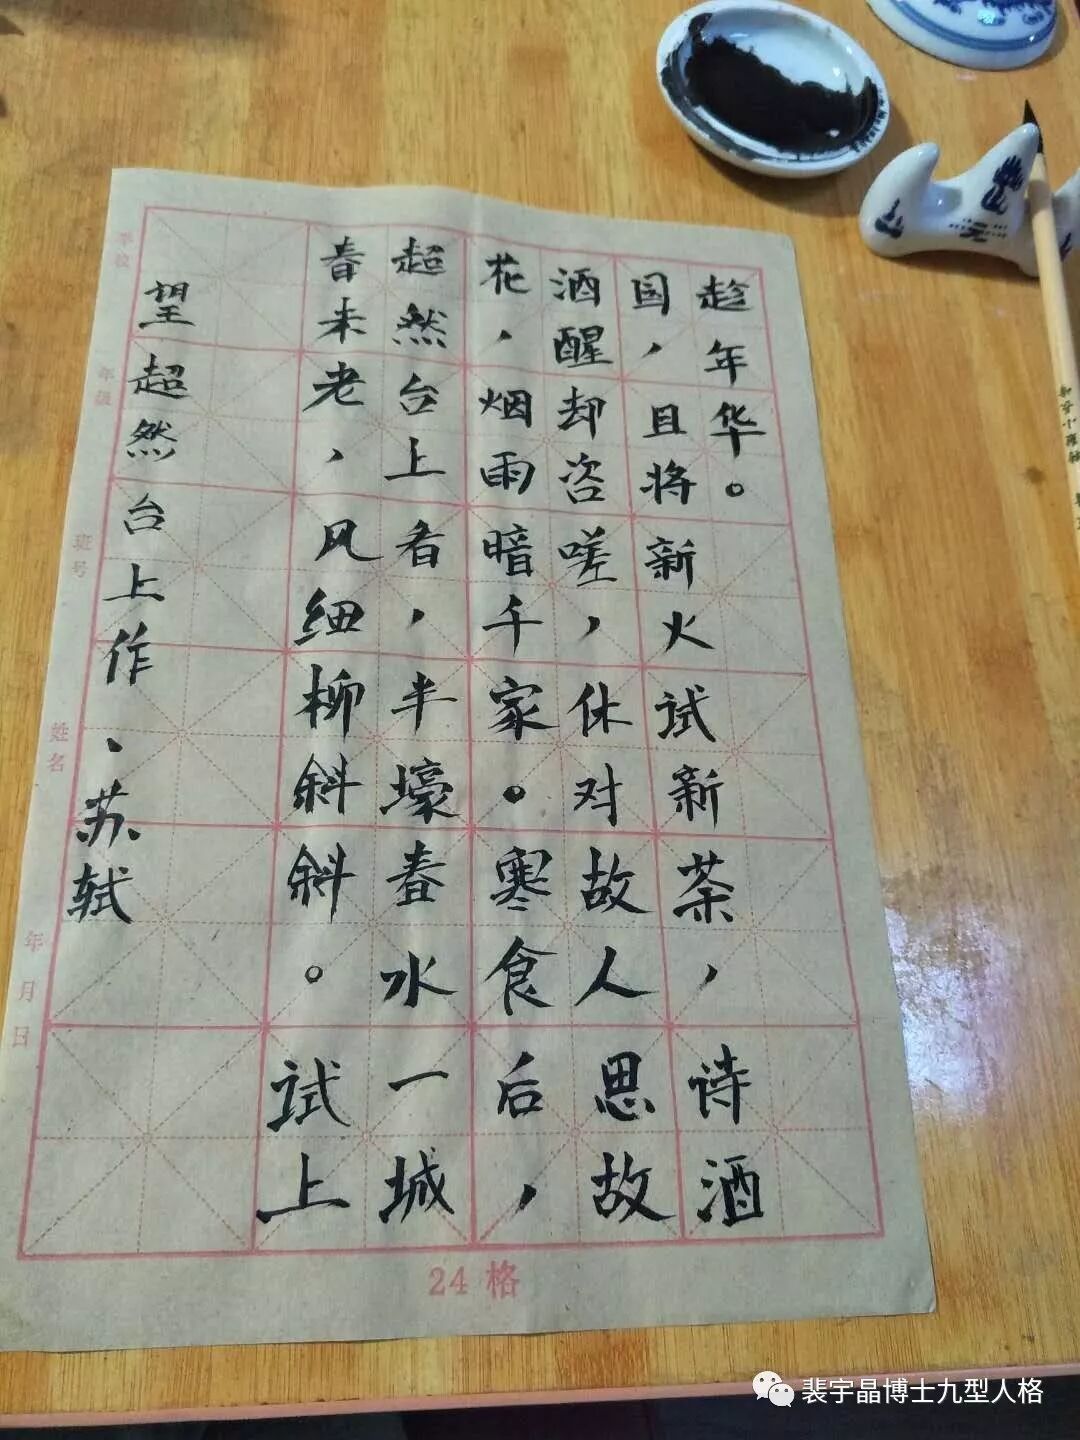 学校 年级 班号 姓名 年月日
望超然台上作、苏轼
春未老，风细柳斜斜。试上
超然台上看，半壕春水一城
花，烟雨暗千家。寒食后，
酒醒却咨嗟，休对故人思故
国，且将新火试新茶，诗酒
趁年华。
24 格
裴宇晶博士九型人格